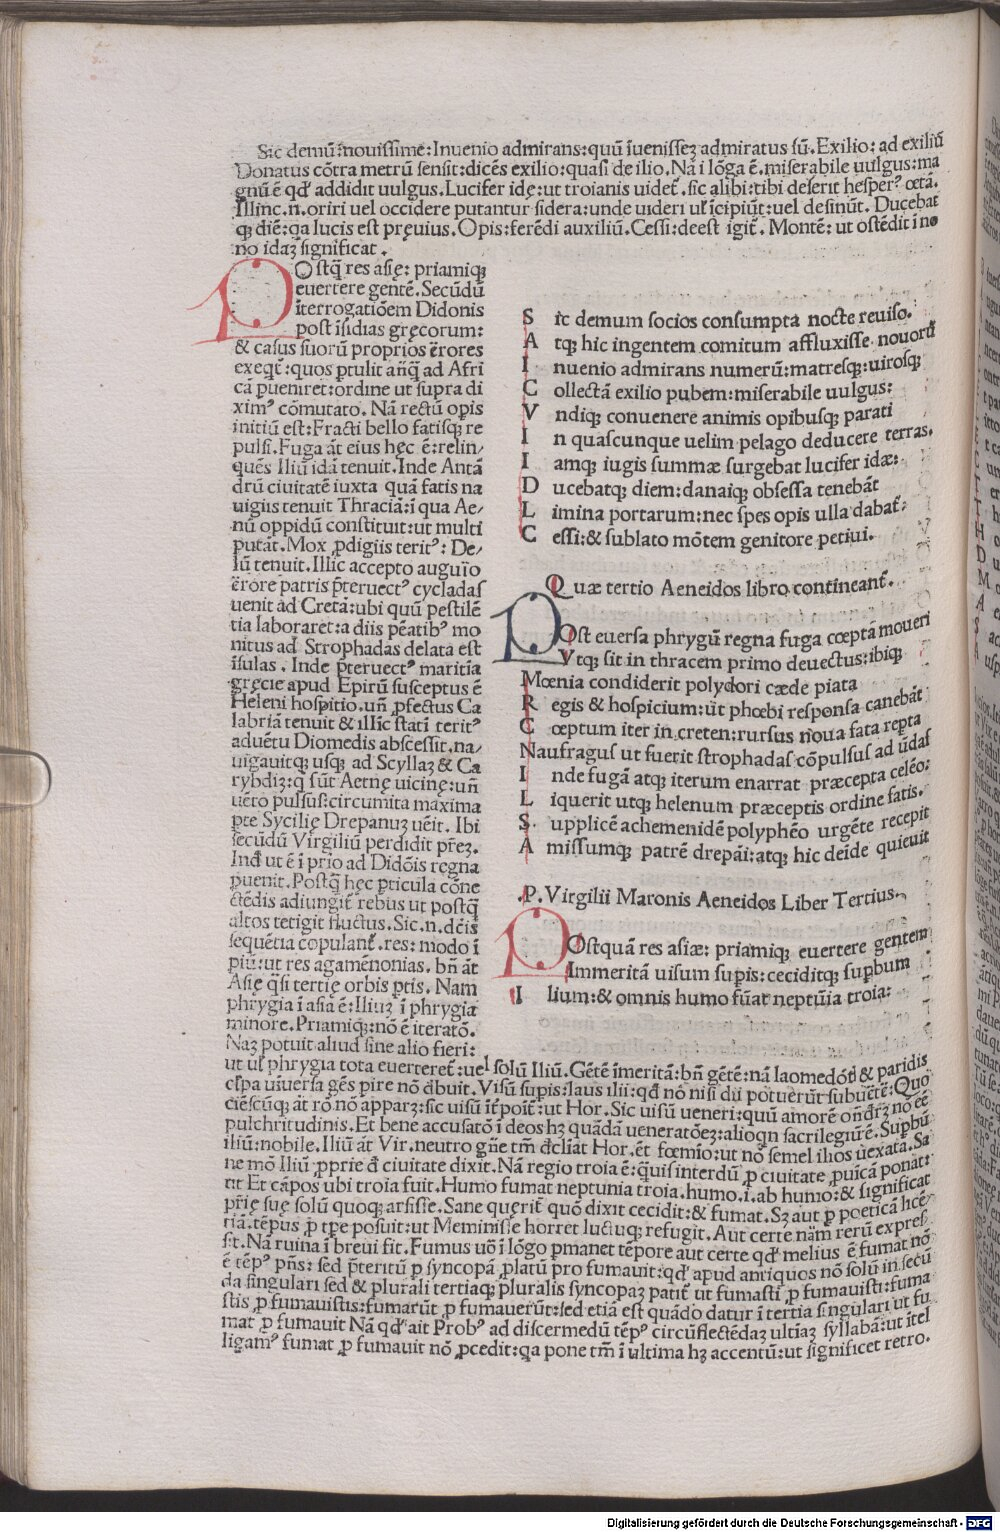 Sic demũ:nouissime:Inuenio admirans:quũ īuenissez admiratus sũ.Exilio:ad exiliũ
Donatus cõtra metrũ sensit:dicẽs exilio:quasi de ilio.Nã i lõga ẽ.miserabile uulgus:ma
gnũ ẽ qđ addidit uulgus.Lucifer idę:ut troianis uidet̃.sic alibi:tibi deserit hesperꝰ œtã.
Illinc.n.oriri uel occidere putantur sidera:unde uideri ul̃ īcipiũt:uel desinũt.Ducebat
qꝫ diẽ:qa lucis est pręuius.Opis:ferẽdi auxiliũ.Cessi:deest igit̃.Montẽ:ut ostẽdit ī no
no idaꝫ significat.
POstq̃ res asię: priamiqꝫ
euertere gentẽ.Secũdũ
īterrogatiõem Didonis
post īsidias gręcorum:
& casus suorũ proprios ẽrores
exeqt̃:quos ꝓtulit añq̃ ad Afri
cã ꝑueniret:ordine ut supra di
ximꝰ cõmutato.Nã rectũ opis
initiũ est:Fracti bello fatisqꝫ re
pulsi.Fuga ãt eius hęc ẽ:relin/
quẽs Iliũ idã tenuit.Inde Antã
drũ ciuitatẽ iuxta quã fatis na
uigiis tenuit Thraciã:ī qua Ae/
nũ oppidũ constituit:ut multi
putãt.Mox ꝓdigiis teritꝰ:De/
lũ tenuit.Illic accepto auguīo
ẽrore patris p̃teruectꝰ cycladas
uenit ad Cretã:ubi quũ pestilẽ
tia laboraret:a diis pẽatibꝰ mo
nitus ad Strophadas delata est
īsulas.Inde p̃teruectꝰ maritīa
gręcie apud Epirũ susceptus ẽ
Heleni hospitio.uñ ꝓfectus Ca
labriã tenuit & illic statī teritꝰ
aduẽtu Diomedis abscessit.na/
uigauitqꝫ usqꝫ ad Scyllaꝫ & Ca
rybdiꝫ:q̃ sũt Aetnę uicinę:uñ
uẽro pulsus:circumita maxima
ꝑte Sycilię Drepanuꝫ uẽit.Ibi
secũdũ Virgiliũ perdidit pr̃eꝫ.
Inđ ut ẽ ī prīo ad Didõis regna
ꝑuenit.Postq̃ hęc ꝑticula cõne
ctẽdis adiungit̃ rebus ut postq̃
altos tetigit fluctus.Sic.n.dc̃is
sequẽtia copulant̃.res:modo ī
piũ:ut res agamẽnonias.bñ ãt
Asię q̃si tertię orbis ꝑtis.Nam
phrygia ī asia ẽ:Iliuꝫ ī phrygia
minore.Priamiqꝫ:nõ ẽ iteratõ.
Naꝫ potuit aliud sine alio fieri:
S ic demum socios consumpta nocte reuiso.
A tqꝫ hic ingentem comitum affluxisse nouorũ
I nuenio admirans numerũ:matresqꝫ:uirosqꝫ
C ollectã exilio pubem:miserabile uulgus:
V ndiqꝫ conuenere animis opibusqꝫ parati
I n quascunque uelim pelago deducere terras.
I amqꝫ iugis summæ surgebat lucifer idæ:
D ucebatqꝫ diem:danaiqꝫ obsessa tenebãt
L imina portarum:nec spes opis ulla dabat̃:
C essi:& sublato mõtem genitore petiui.
Quæ tertio Aeneidos libro contineant̃.
POst euersa phrygũ regna fuga cœpta moueri
Vtqꝫ sit in thracem primo deuectus:ibiqꝫ
Mœnia condiderit polydori cæde piata
R egis & hospicium:ut phœbi responsa canebãt
C œptum iter in creten:rursus noua fata repta
Naufragus ut fuerit strophadas cõpulsus ad ũdas
I nde fugã atqꝫ iterum enarrat præcepta celẽo:
L iquerit utqꝫ helenum præceptis ordine fatis.
S upplicẽ achemenidẽ polyphẽo urgẽte recepit
A missumqꝫ patrẽ drepãi:atqꝫ hic deĩde quieuit
.P.Virgilii Maronis Aeneidos Liber Tertius.
POstquã res asiæ: priamiqꝫ euertere gentem
Immeritã uisum suꝑis:ceciditqꝫ suꝑbum
I lium:& omnis humo fũat neptuīa troia:
ut ul̃ phrygia tota euerteret̃:uel solũ Iliũ.Gẽtẽ īmeritã:bñ gẽtẽ:nã laomedõtĩ & paridis
cl̃pa uīuersa gẽs ꝑire nõ đbuit.Visũ suꝑis:laus ilii:qđ nõ nisi dii potuerũt subuẽtẽ:Quo
ciẽscũqꝫ ãt rõ nõ apparꝫ:sic uisũ ĩt̃poĩt̃:ut Hor.Sic uisũ ueneri:quũ amorẽ oñđrꝫ nõ eẽ
pulchritudinis.Et bene accusatõ ī deos hꝫ quãdã ueneratõeꝫ:alioqn sacrilegiũ ẽ.Suꝑbũ
iliũ:nobile.Iliũ ãt Vir.neutro gñe tm̃ đcliãt Hor.ẽt fœmīo:ut nõ semel ilios uexata.Sa
ne mõ Iliũ ꝓprie đ ciuitate dixit.Nã regio troia ẽ:q̃uis interdũ ꝓ ciuitate ꝓuīcã ponãt:
ut Et cãpos ubi troia fuit.Humo fumat neptunia troia.humo.i.ab humo:& significat
pr̃ię suę solũ quoqꝫ arsisse.Sane quęrit̃ quõ dixit cecidit:& fumat.Sꝫ aut ꝓ poeticã hc̃ẽ
riã.tẽpus ꝓ tꝑe posuit:ut Meminisse horret luctuqꝫ refugit.Aut certe nãm rerũ expres
sit.Nã ruina ī breui fit.Fumus uõ ī lõgo ꝑmanet tẽpore aut certe qđ melius ẽ fumat nõ
ẽ tẽpꝰ pñs: sed p̃teritũ ꝑ syncopã platũ pro fumauit:qđ apud antiquos nõ solũ in secũ
da singulari sed & plurali tertiaqꝫ pluralis syncopaꝫ patit̃ ut fumasti ꝓ fumauisti:fuma
stis ꝓ fumauistis:fumarũt ꝓ fumauerũt:sed etiã est quãdo datur ī tertia singulari ut fu
mat ꝓ fumauit Nã qđ ait Probꝰ ad discernedũ tẽpꝰ circũflectẽdaꝫ ultīaꝫ syllabã:ut ītel
ligamꝰ fumat ꝓ fumauit nõ ꝓcedit:qa pone tm̃ ī ultima hꝫ accentũ:ut significet retro.
Digitalisierung gefördert durch die Deutsche Forschungsgemeinschaft - DFG